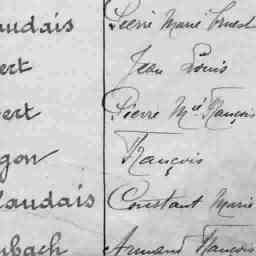 audais Pierre Marie Ernest
ert Jean Louis
ert Pierre Mie François
gon François
laudais Constant Marie
mbach Armand François